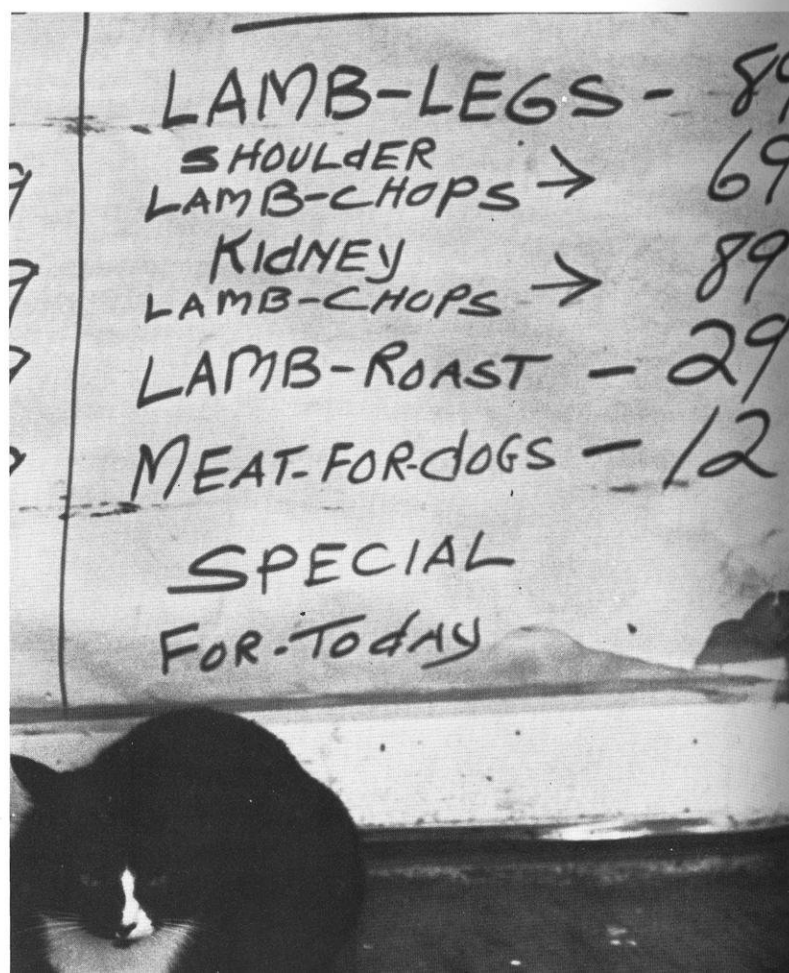 LAMB-LEGS - 89
SHOULdER
LAMB-CHOPS → 69
KIdNEY
LAMB-CHOPS → 89
LAMB-ROAST - 29
MEAT-FOR-dOGS - 12
SPECIAL
FOR-TOdAY